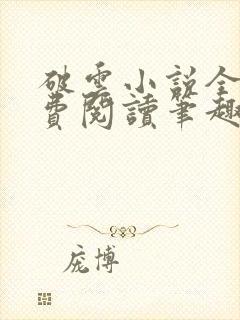 破云小说全
费阅讀笔趣
庞博